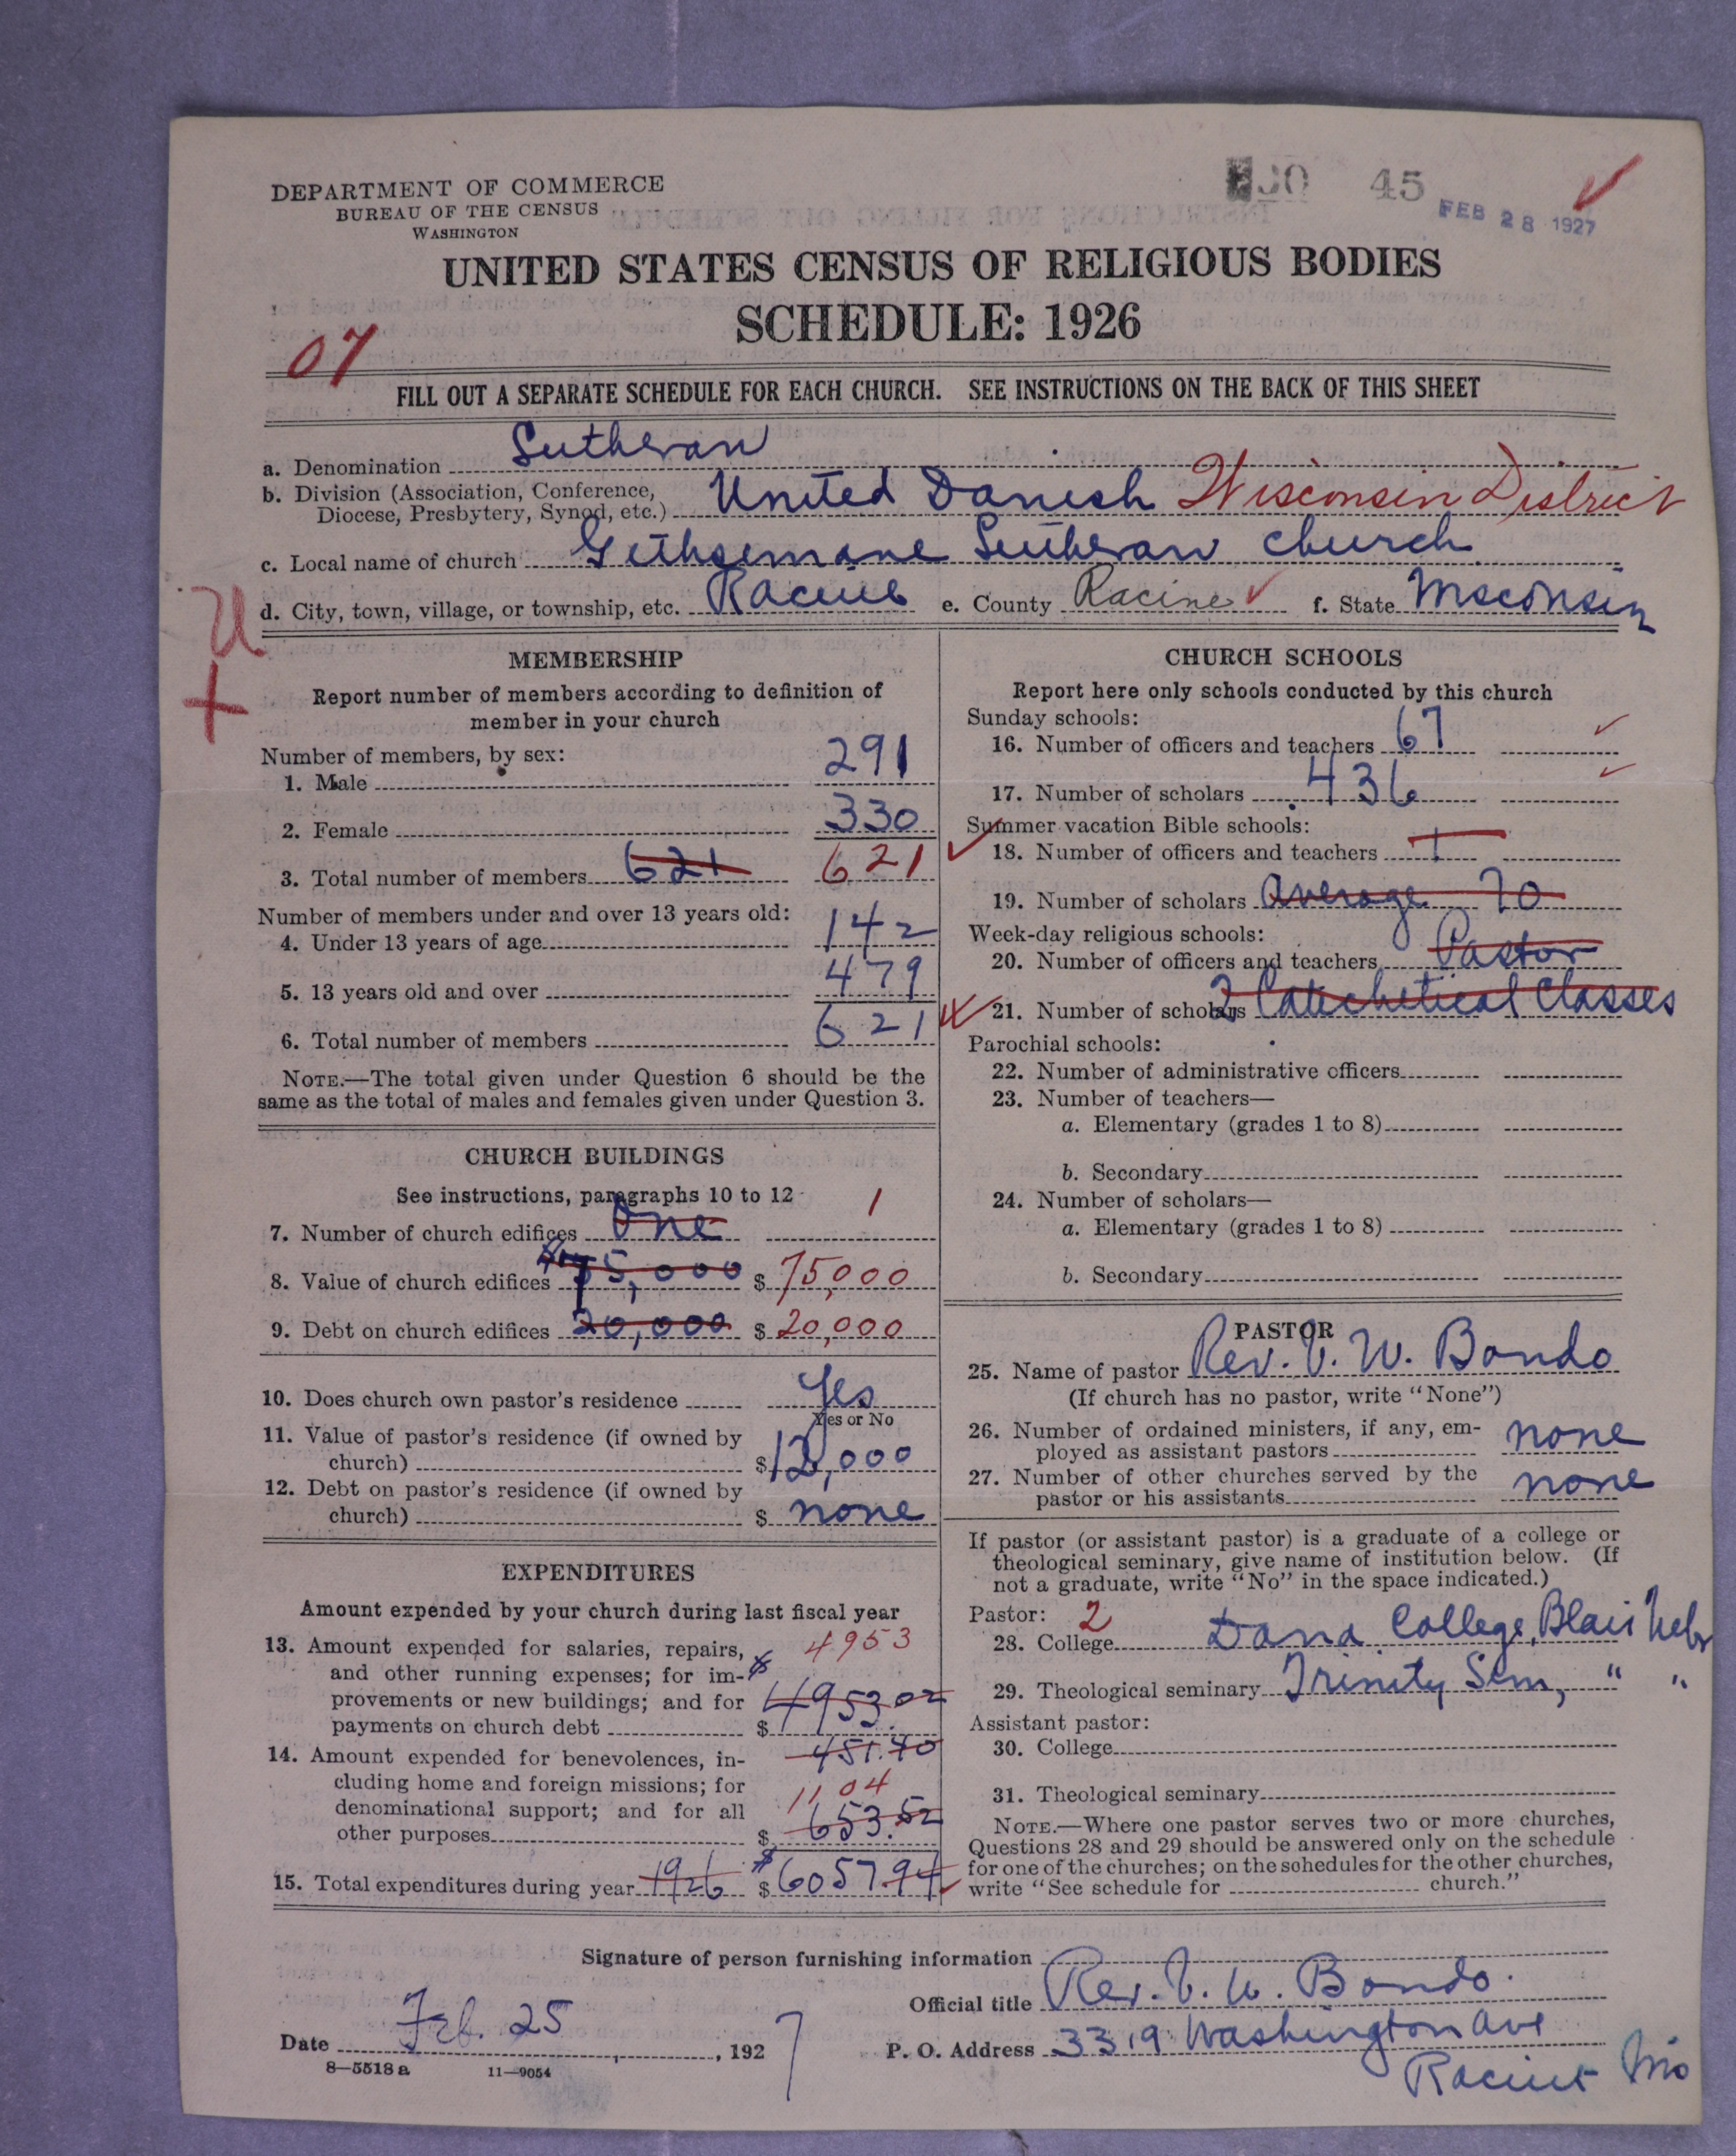 DEPARTMENT OF COMMERCE
BUREAU OF THE CENSUS
WASHINGTON
45
FEB 28 1927
UNITED STATES CENSUS OF RELIGIOUS BODIES
SCHEDULE: 1926
07
FILL OUT A SEPARATE SCHEDULE FOR EACH CHURCH. SEE INSTRUCTIONS ON THE BACK OF THIS SHEET
a. Denomination Lutheran
b. Division (Association, Conference, Diocese, Presbytery, Synod, etc.) United Danish Wisconsin District
c. Local name of church Gethsemane Lutheran church
d. City, town, village, or township, etc. Racine e. County Racine f. State Wisconsin
U
+
MEMBERSHIP
Report number of members according to definition of
member in your church
Number of members, by sex:
1. Male 291
2. Female 330
3. Total number of members 621 621
Number of members under and over 13 years old:
4. Under 13 years of age 142
5. 13 years old and over 479
6. Total number of members 621
NOTE.—The total given under Question 6 should be the
same as the total of males and females given under Question 3.
CHURCH BUILDINGS
See instructions, paragraphs 10 to 12
7. Number of church edifices One 1
8. Value of church edifices 75,000 $ 75,000
9. Debt on church edifices 20,000 $ 20,000
10. Does church own pastor's residence Yes
Yes or No
11. Value of pastor's residence (if owned by
church) $ 12,000
12. Debt on pastor's residence (if owned by
church) $ none
EXPENDITURES
Amount expended by your church during last fiscal year
13. Amount expended for salaries, repairs, 4953
and other running expenses; for im-
provements or new buildings; and for 4953.02
payments on church debt $
14. Amount expended for benevolences, in- 451.40
cluding home and foreign missions; for 1104
denominational support; and for all
other purposes $ 653.52
15. Total expenditures during year 1926 $ 6057.94
CHURCH SCHOOLS
Report here only schools conducted by this church
Sunday schools:
16. Number of officers and teachers 67
17. Number of scholars 436
Summer vacation Bible schools:
18. Number of officers and teachers 1
19. Number of scholars average 70
Week-day religious schools:
20. Number of officers and teachers Pastor
21. Number of scholars 2 Catechetical Classes
Parochial schools:
22. Number of administrative officers
23. Number of teachers—
a. Elementary (grades 1 to 8)
b. Secondary
24. Number of scholars—
a. Elementary (grades 1 to 8)
b. Secondary
PASTOR
25. Name of pastor Rev. V. W. Bondo
(If church has no pastor, write "None")
26. Number of ordained ministers, if any, em-
ployed as assistant pastors none
27. Number of other churches served by the
pastor or his assistants none
If pastor (or assistant pastor) is a graduate of a college or
theological seminary, give name of institution below. (If
not a graduate, write "No" in the space indicated.)
Pastor: 2
28. College Dana College, Blair Nebr
29. Theological seminary Trinity Sem, " "
Assistant pastor:
30. College
31. Theological seminary
NOTE.—Where one pastor serves two or more churches,
Questions 28 and 29 should be answered only on the schedule
for one of the churches; on the schedules for the other churches,
write "See schedule for church."
Signature of person furnishing information
Official title Rev. V. W. Bondo.
Date Feb. 25, 1927
P. O. Address 3319 Washington Ave
Racine Wis
8—5518 a 11—9054